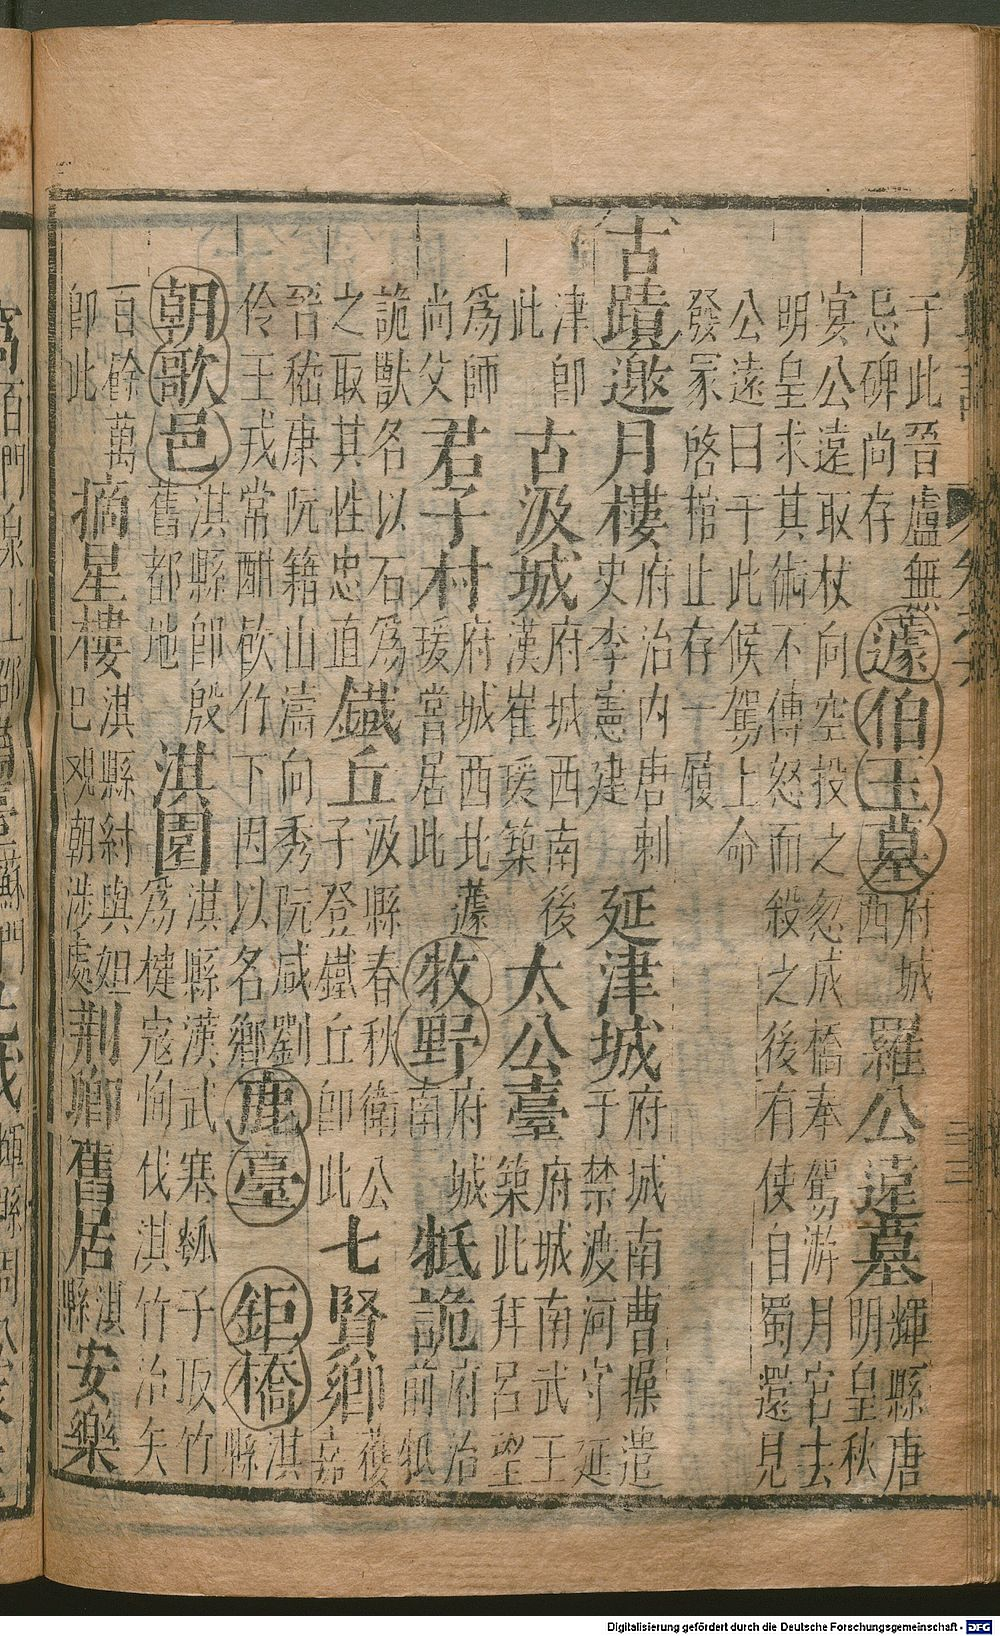 于此晉盧無忌碑尚存蘧伯玉墓府城西羅公遠墓輝縣唐明皇秋
宴公遠取杖向空投之忽成橋奉駕游月宮去明皇求其術不傳怒而殺之後有使自蜀還見
公遠曰于此候駕上命發冢啓棺止存一履
古蹟邀月樓府治内唐刺史李憲建延津城府城南曹操遣于禁渡河守延
津即此古汲城府城西南後漢崔瑗築太公臺府城南武王築此拜呂望
為師尚父君子村府城西北蘧瑗嘗居此牧野府城南牴詭府治前牴
詭獸名以石為之取其性忠直鐵丘汲縣春秋衛公子登鐵丘即此七賢鄉獲嘉
晉嵇康阮籍山濤向秀阮咸劉伶王戎常酣飲竹下因以名鄉鹿臺鉅橋淇縣
朝歌邑淇縣即殷舊都地淇園淇縣漢武塞瓠子取竹為楗寇恂伐淇竹治矢
百餘萬即此摘星樓淇縣紂與妲己観朝涉處荆卿舊居淇縣安樂
Digitalisierung gefördert durch die Deutsche Forschungsgemeinschaft - DFG